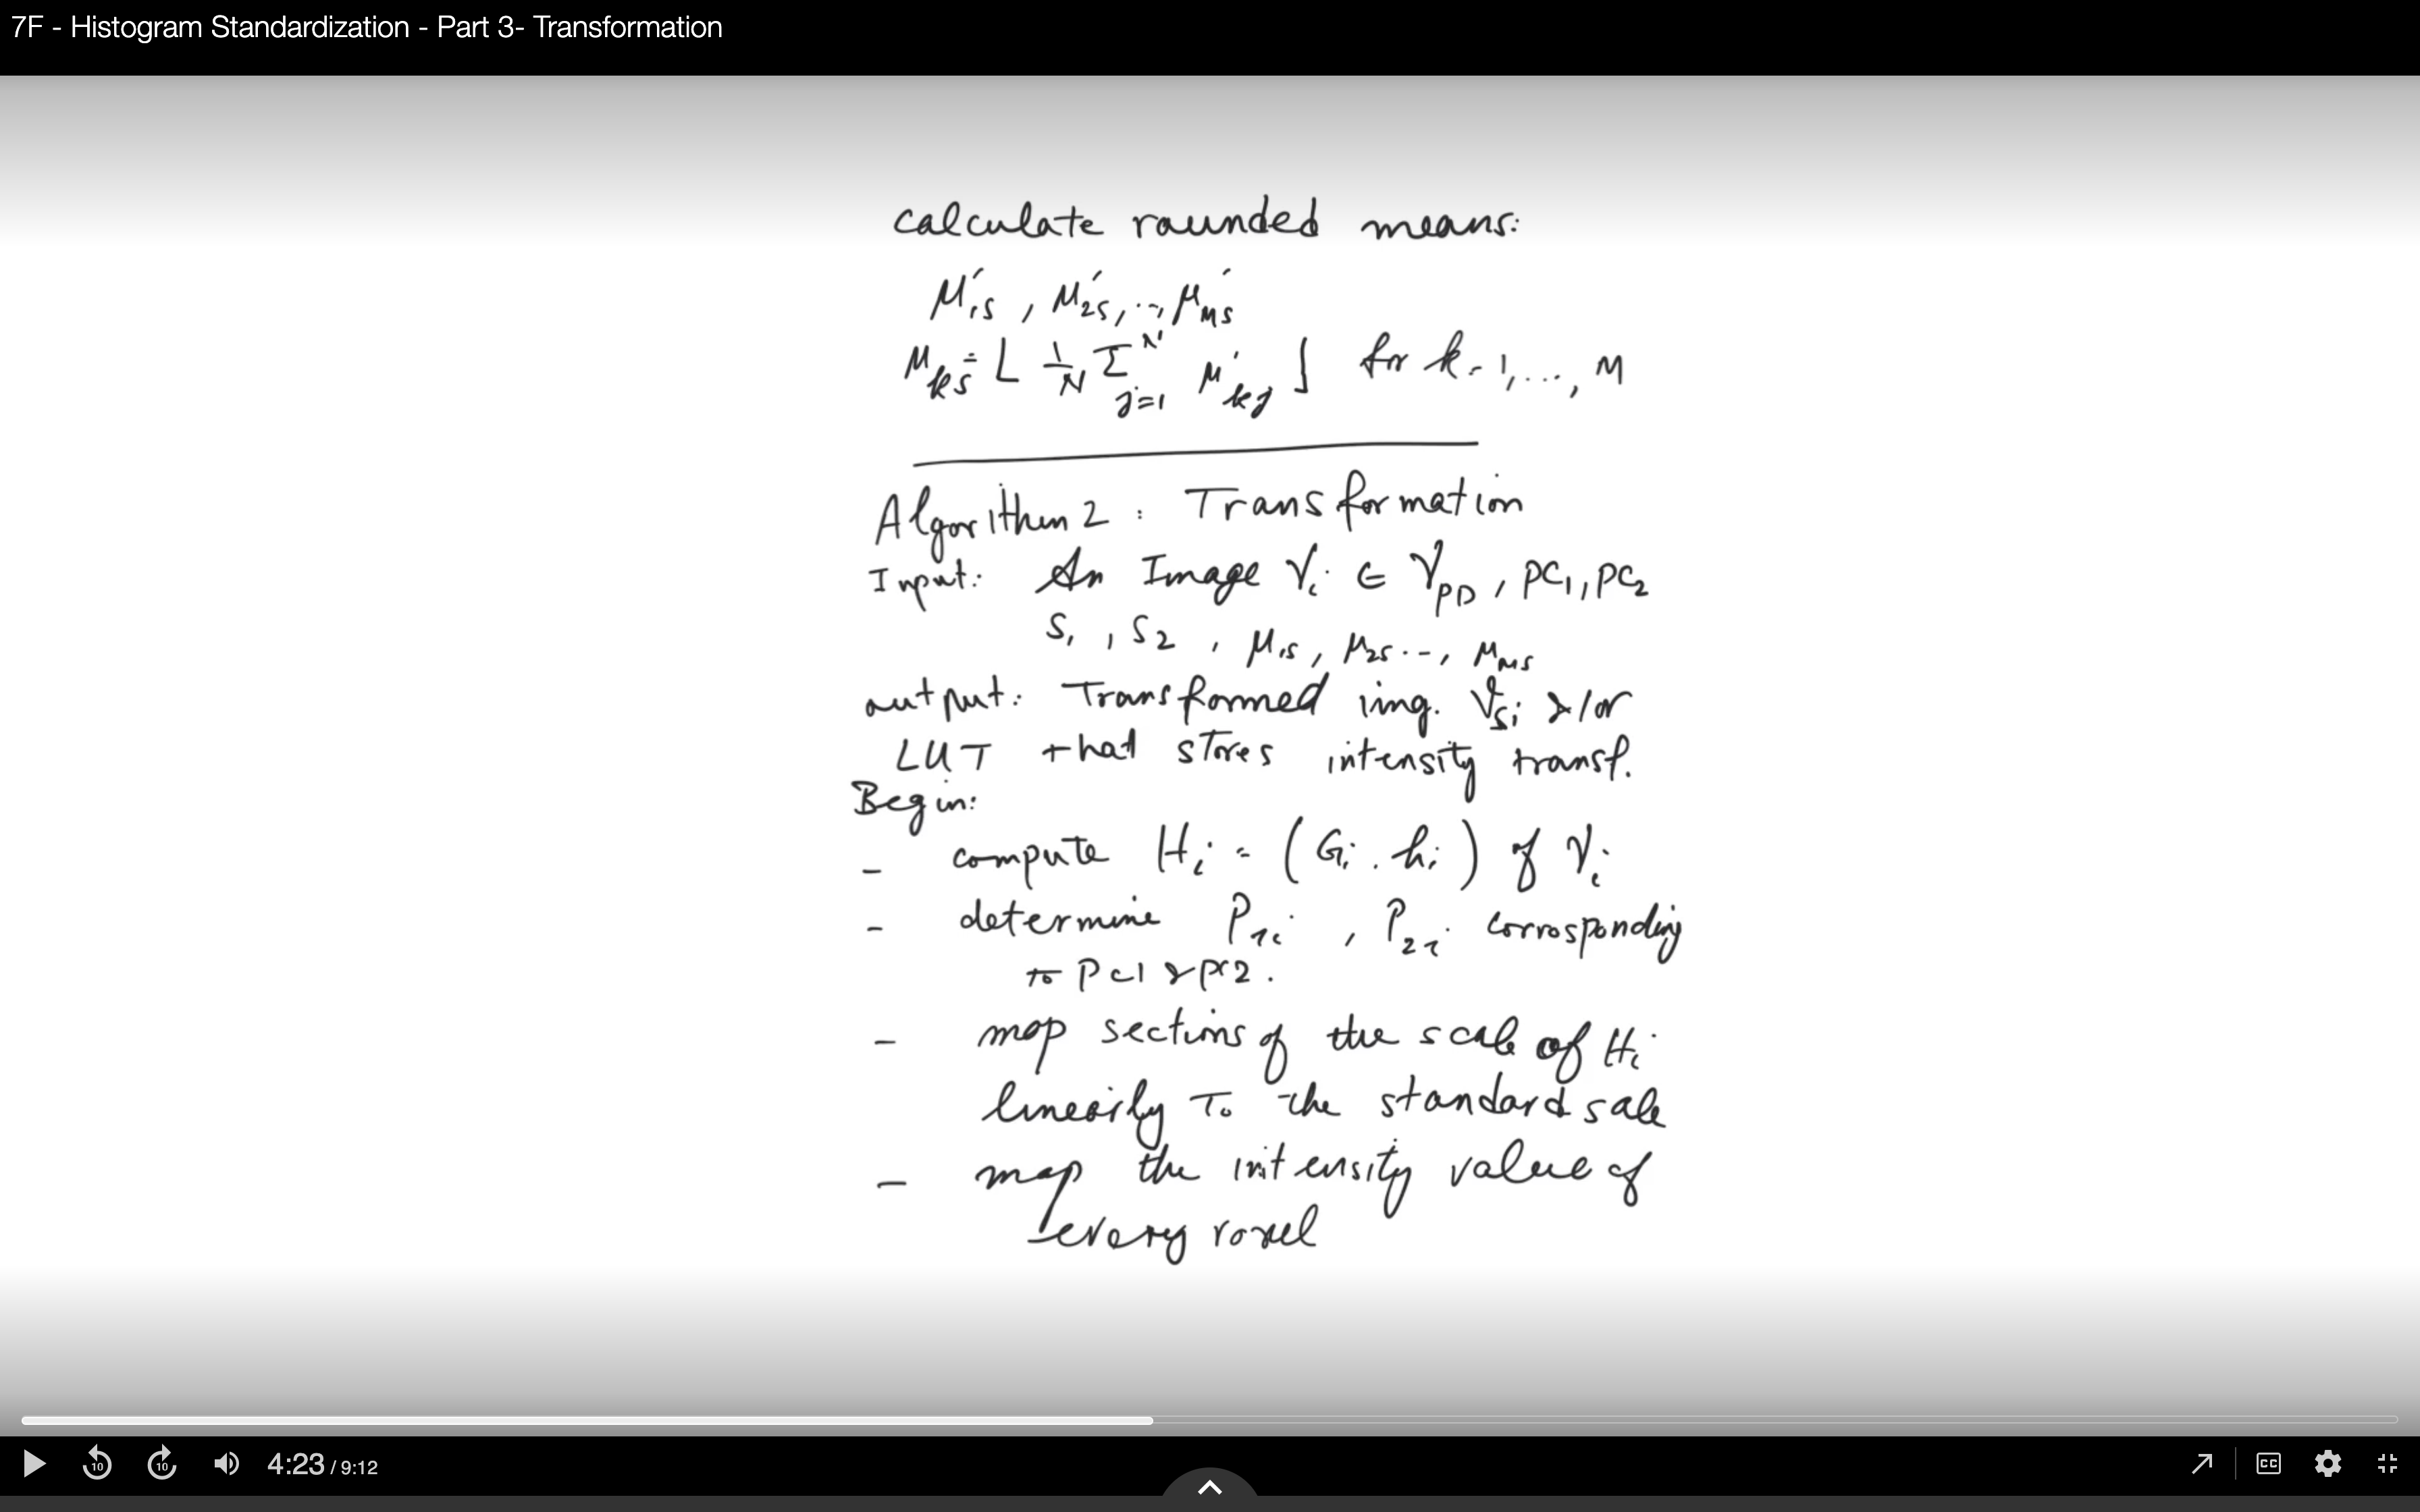 7F - Histogram Standardization - Part 3- Transformation
calculate rounded means:
μ'1s, μ'2s, ..., μ'ms
μks = ⌊ 1/N Σ j=1 N μ'kj ⌋ for k=1, ..., M
Algorithm 2: Transformation
Input: An Image Vi ∈ VPD, PC1, PC2
S1, S2, μ1s, μ2s ..., μms
output: Transformed img. Vsi &/or
LUT that stores intensity transf.
Begin:
- compute Hi = (Gi, hi) of Vi
- determine P1i, P2i corrosponding
to PC1 & PC2.
- map sections of the scale of Hi
linearly To the standard sale
- map the intensity value of
every voxel
10 10 4:23 / 9:12 CC